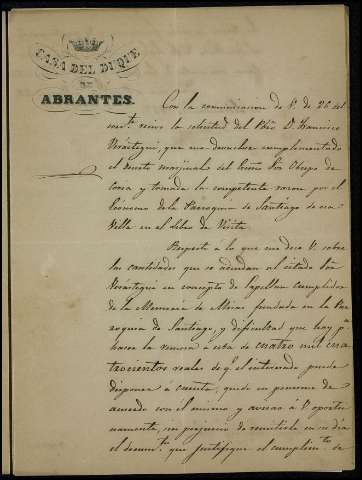 CASA DEL DUQUE
DE
ABRANTES.
Con la comunicacion de V. de 26 del
recivo la solicitud del Pbro. D. Francisco
Verástegui, que me devuelve cumplimentado
el decreto marginal del Ilmo Sor Obispo de
Coria y tomada la competente razon por el
Ecónomo de la Parroquia de Santiago de esa
Villa en el libro de Visita.
Respecto á lo que me dice V. sobre
las cantidades que se adeudan al citado Sor
Verástegui en concepto de Capellan cumplidor
de la Memoria de Misas fundada en la Par
roquia de Santiago, y dificultad que hay pa
hacer la remesa á esta de cuatro mil cua
trocientos reales de q.e el interesado puede
disponer á cuenta, quedo en ponerme de
acuerdo con el mismo y avisar á V. oportu
namente, sin perjuicio de remitirle en su dia
el docum.to que justifique el cumplim.to de